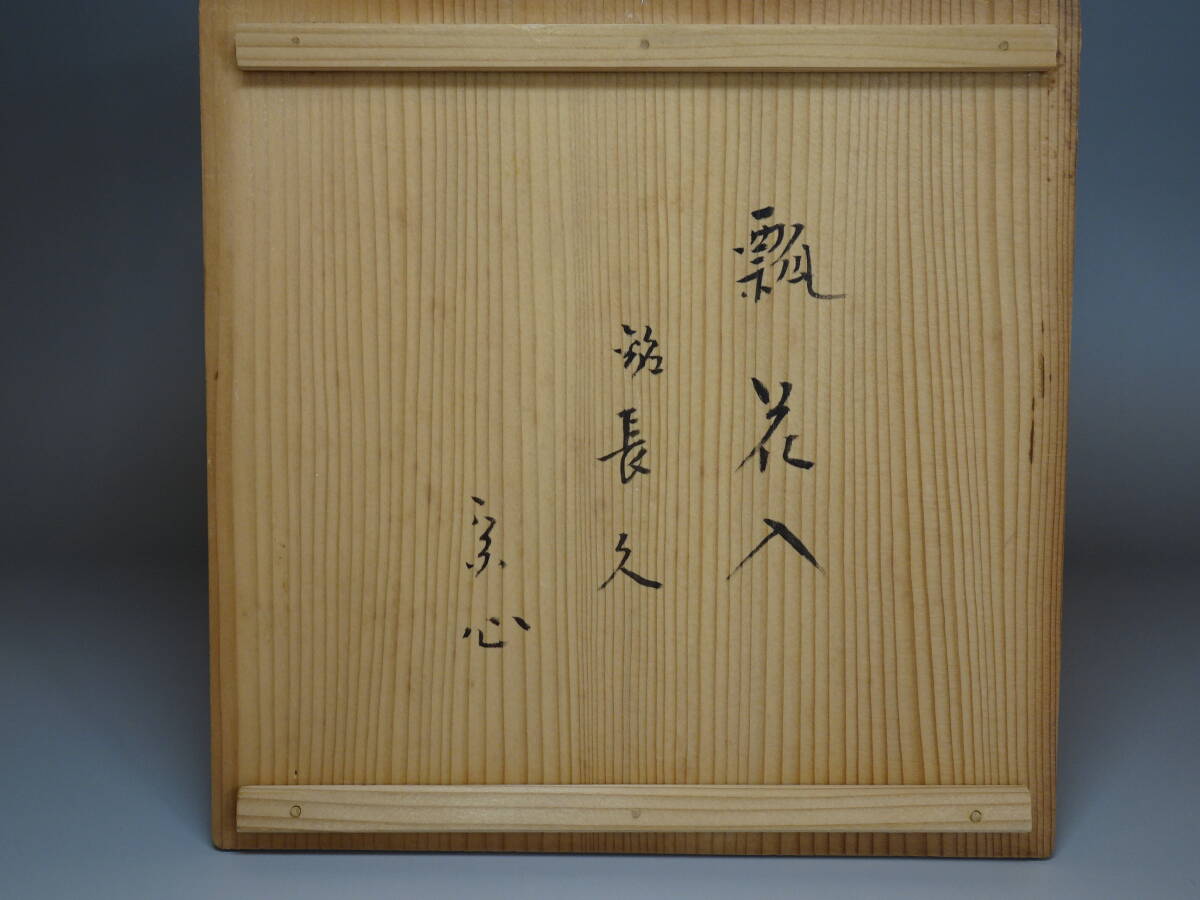 瓢花入
銘長久
宗心